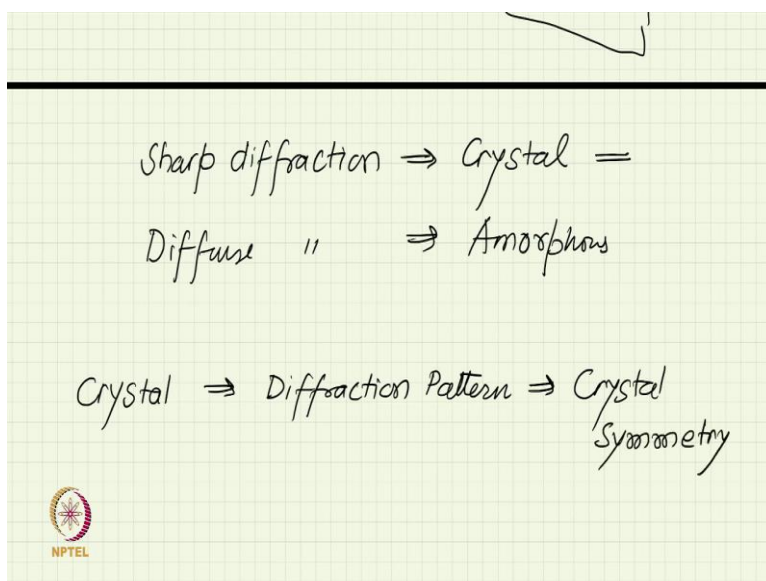 Sharp diffraction ⇒ Crystal =
Diffuse " ⇒ Amorphous
Crystal ⇒ Diffraction Pattern ⇒ Crystal
Symmetry
NPTEL